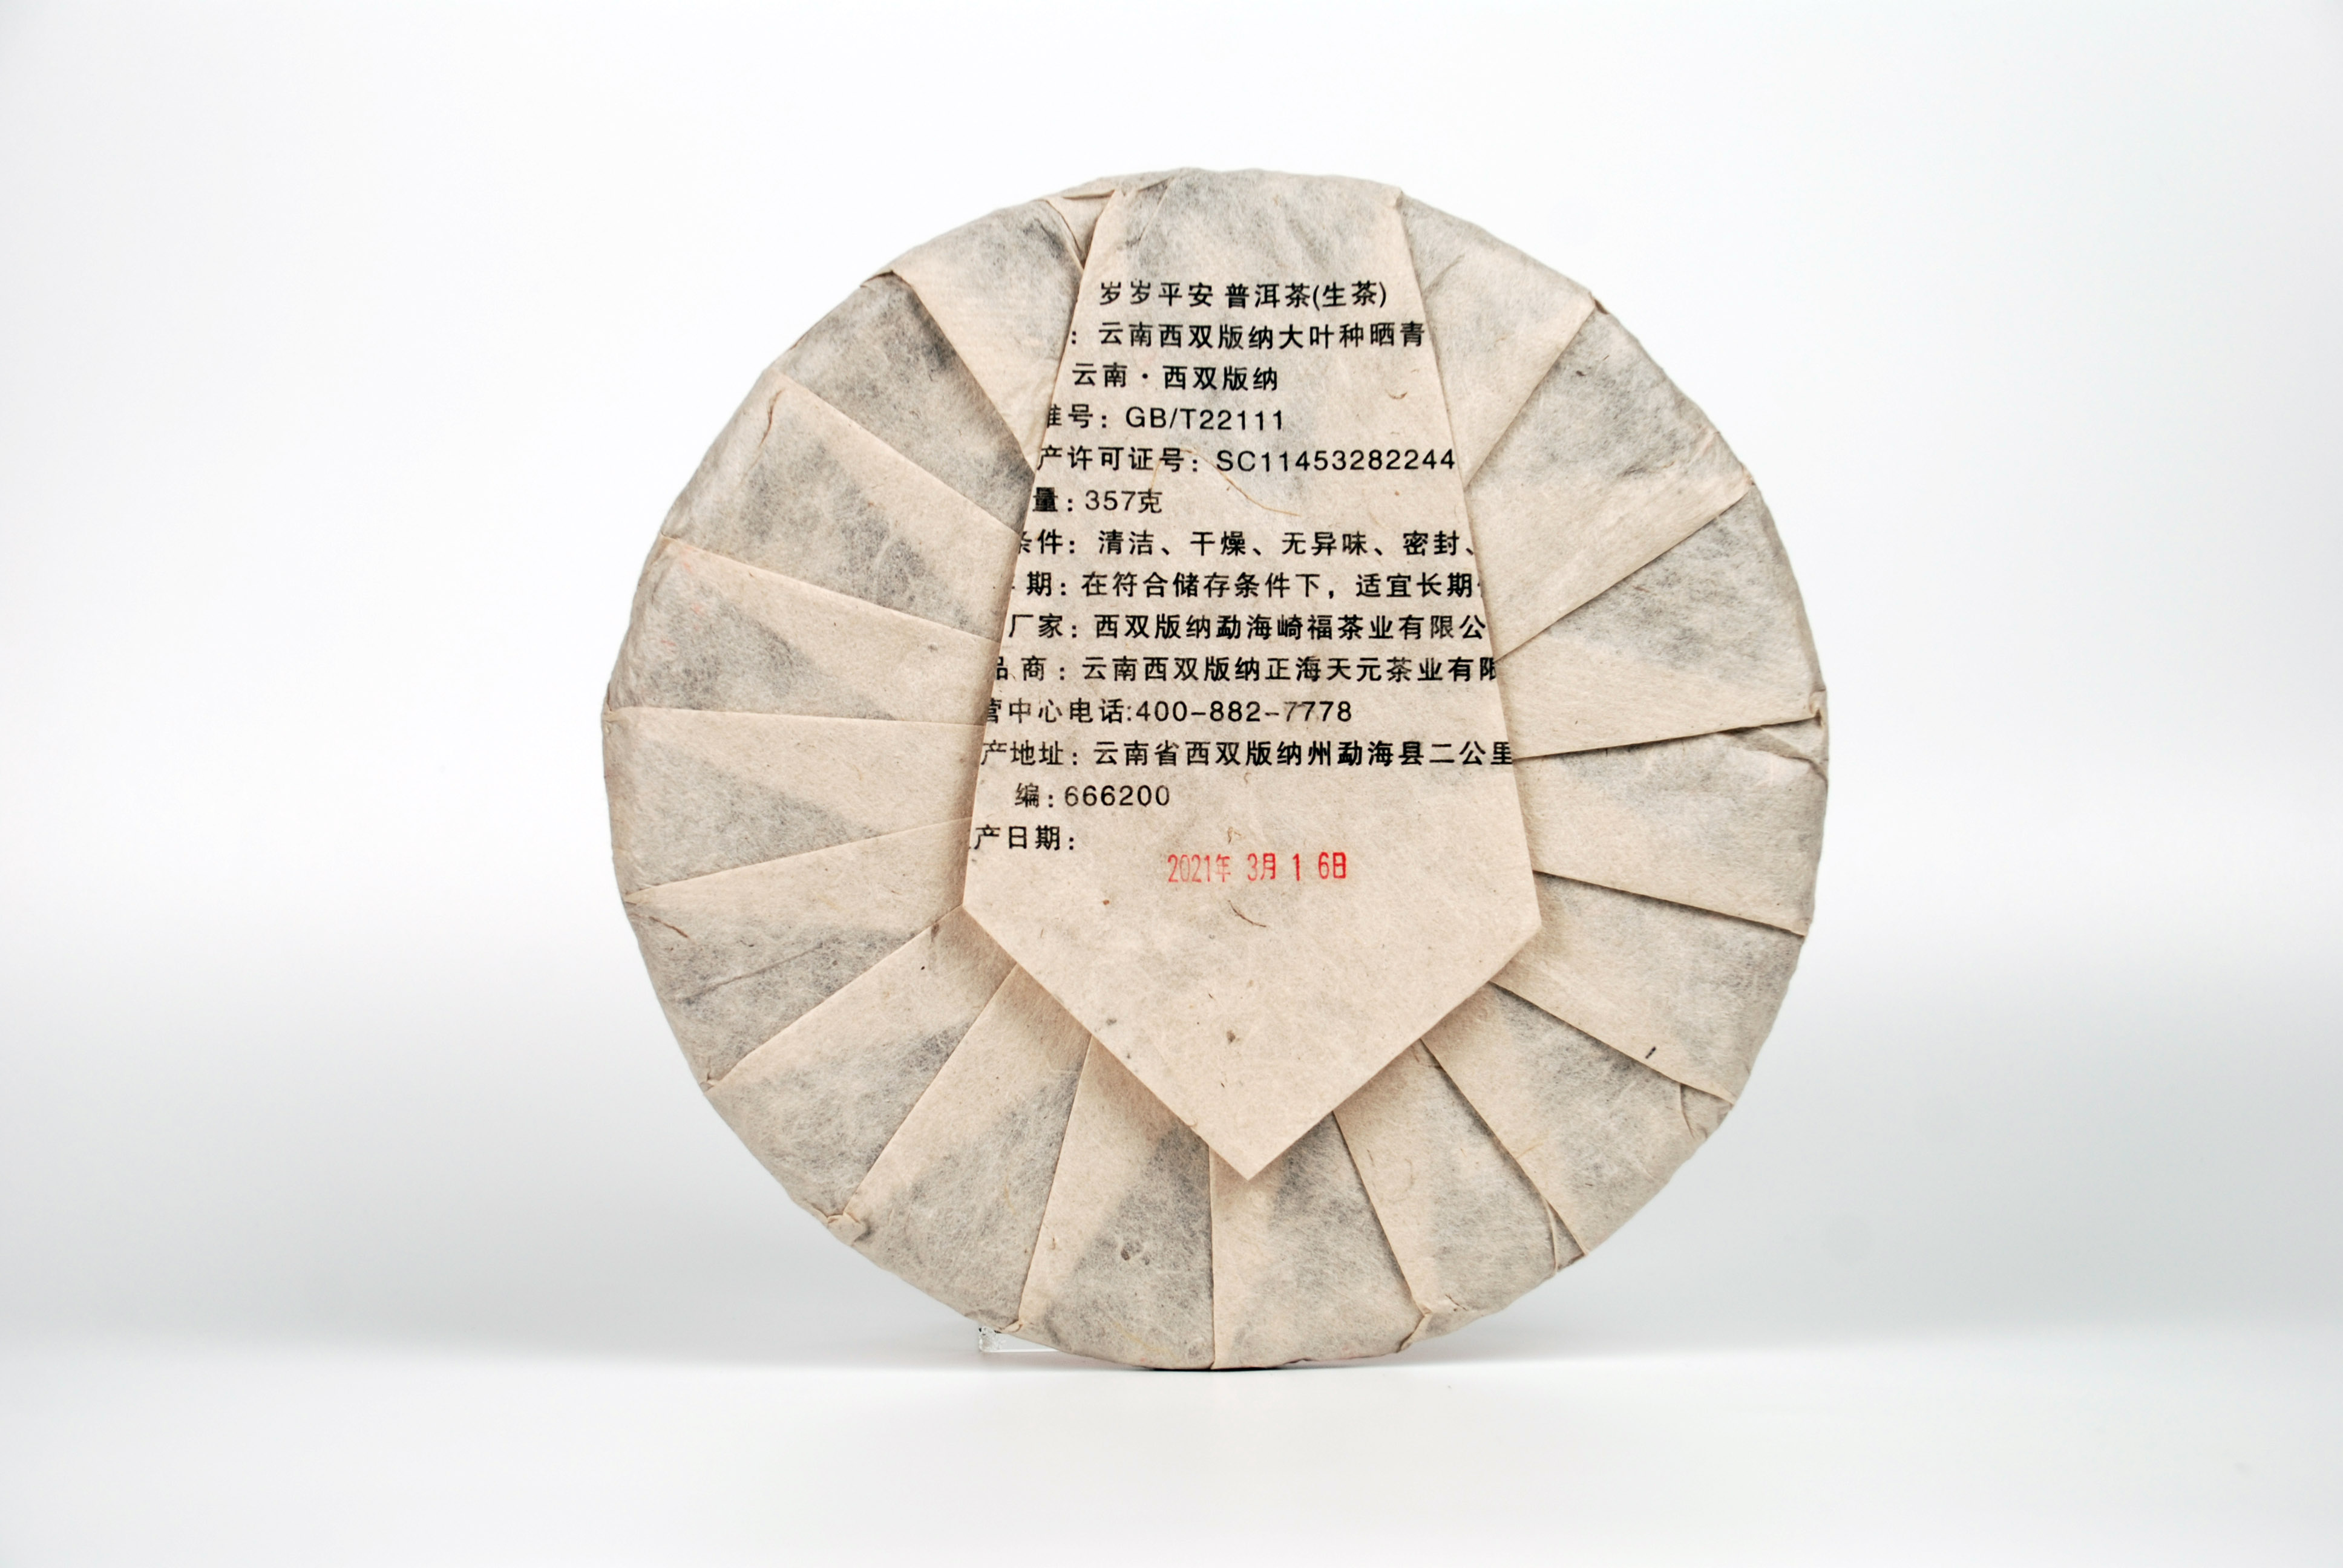 岁岁平安 普洱茶(生茶)
：云南西双版纳大叶种晒青
云南·西双版纳
准号：GB/T22111
产许可证号：SC11453282244
量：357克
条件：清洁、干燥、无异味、密封、
期：在符合储存条件下，适宜长期
厂家：西双版纳勐海崎福茶业有限公
品商：云南西双版纳正海天元茶业有限
营中心电话:400-882-7778
产地址：云南省西双版纳州勐海县二公里
编：666200
产日期：
2021年 3月 1 6日